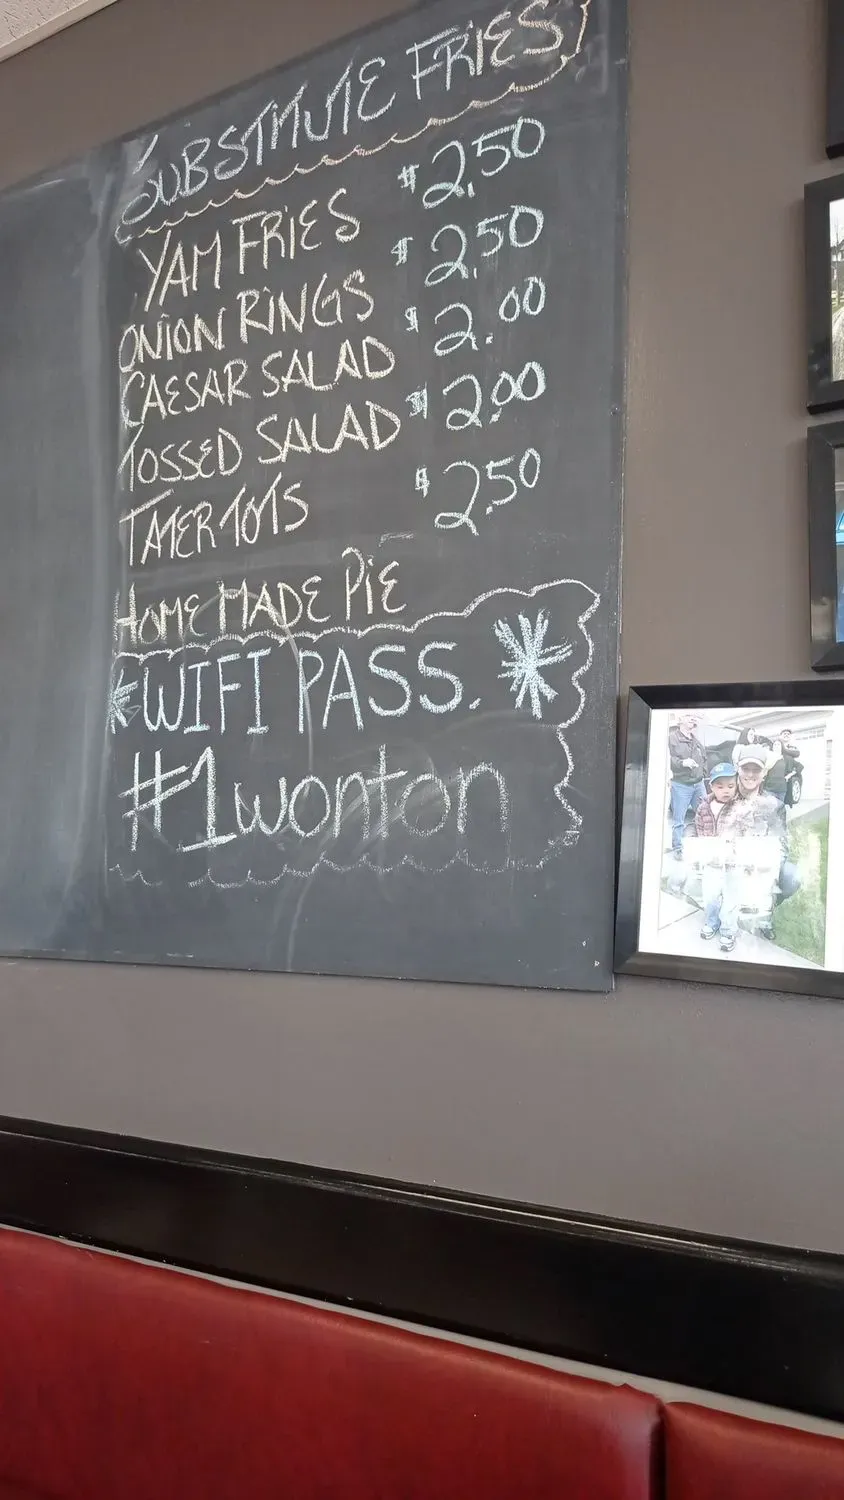 SUBSTITUTE FRIES
YAM FRIES $2.50
ONION RINGS $2.50
CAESAR SALAD $2.00
TOSSED SALAD $2.00
TATER TOTS $2.50
HOME MADE PIE
*WIFI PASS. *
#1wonton